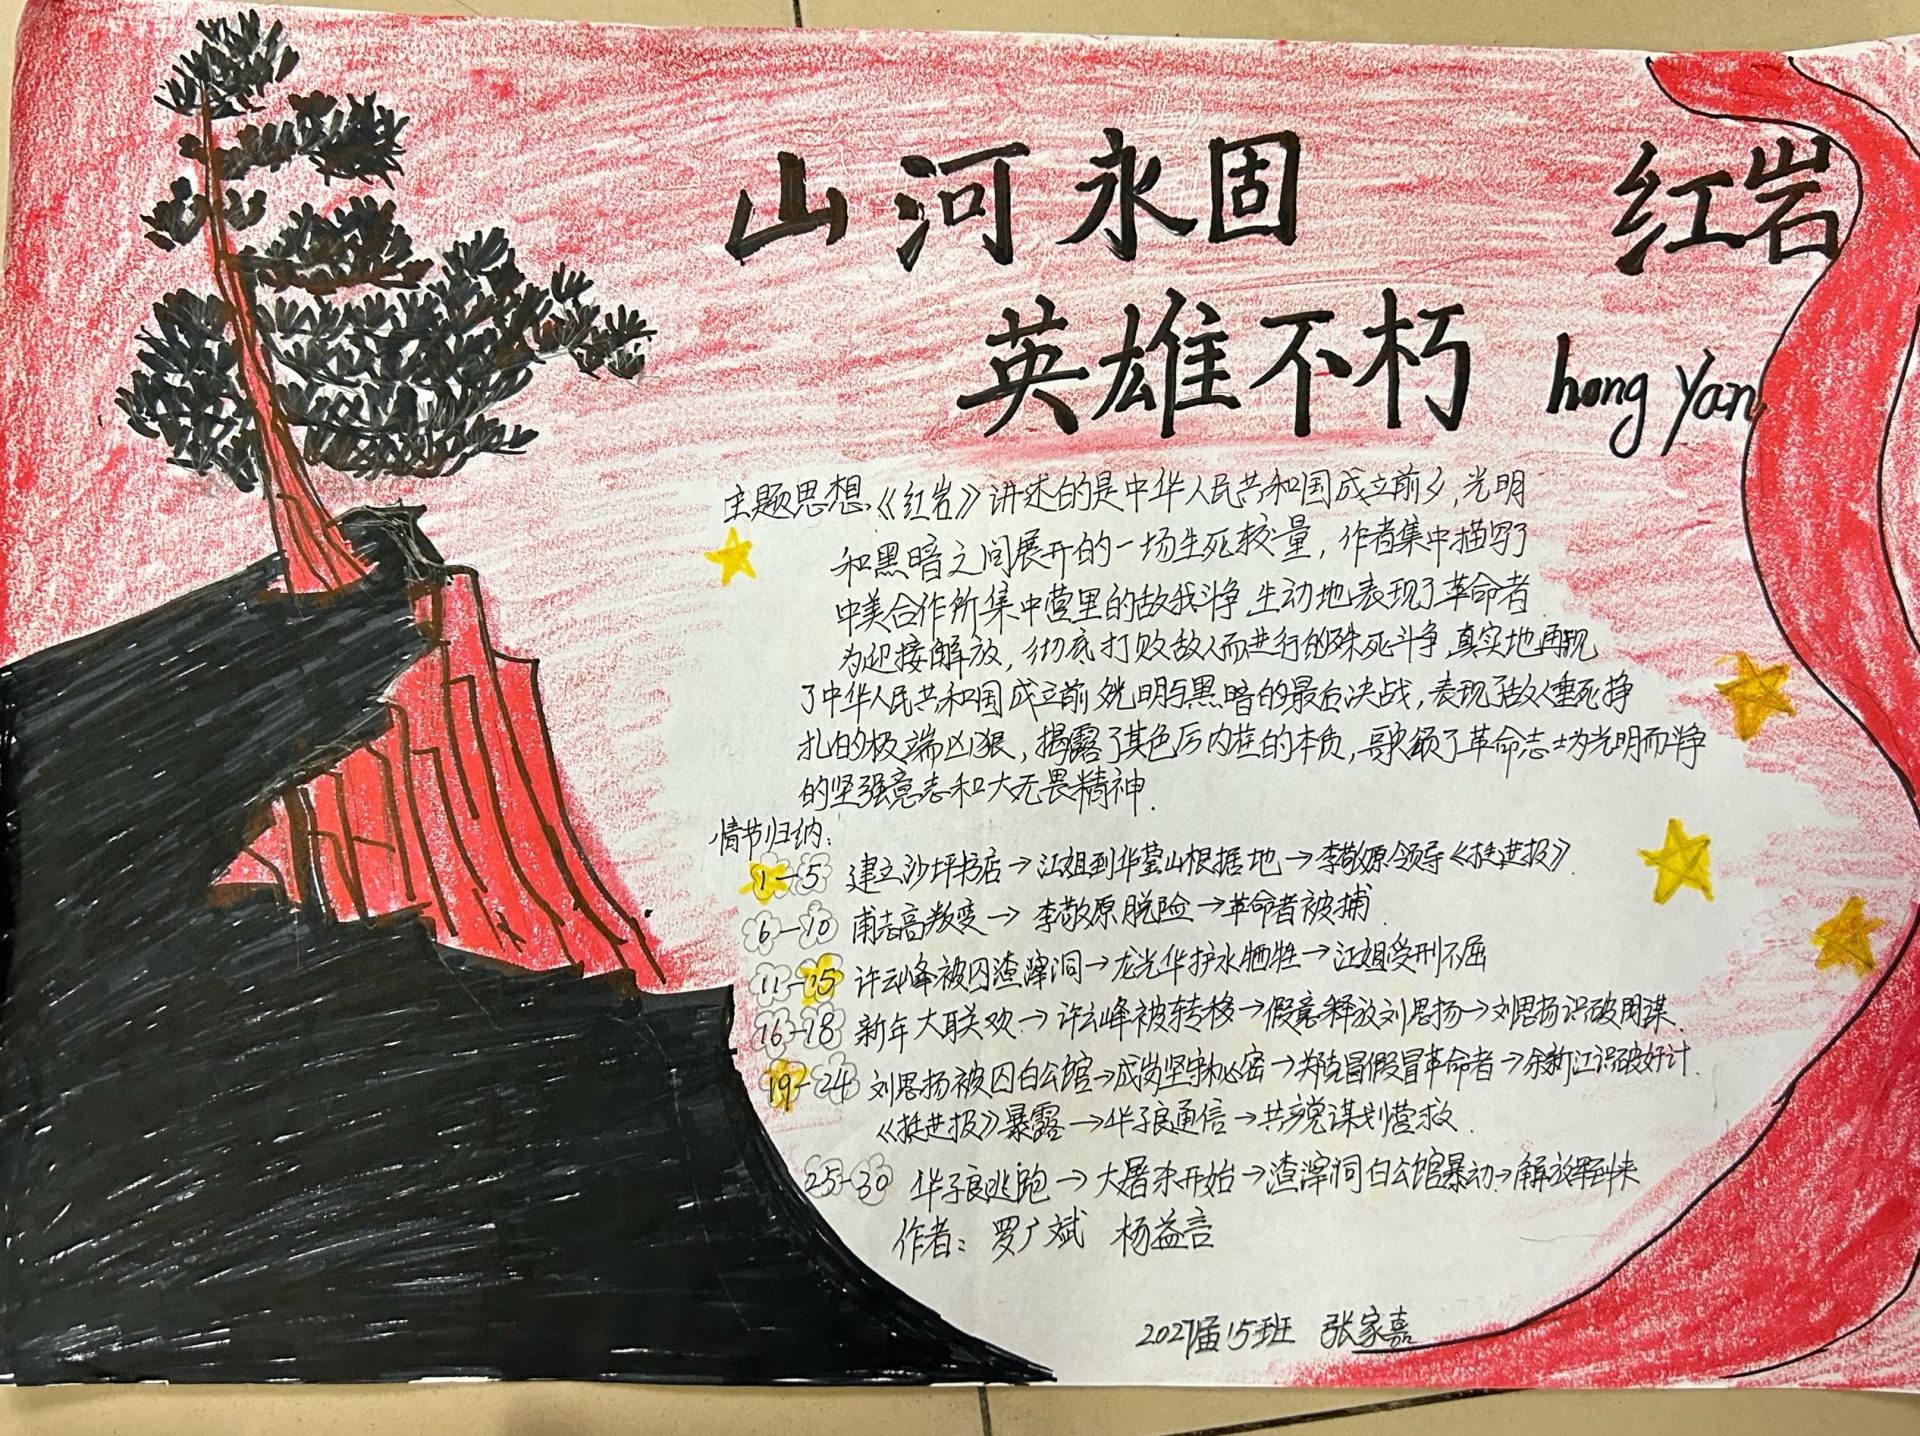 山河永固
红岩
英雄不朽
hong yan
主题思想《红岩》讲述的是中华人民共和国成立前夕,光明
和黑暗之间展开的一场生死较量,作者集中描写了
中美合作所集中营里的敌我斗争 生动地表现了革命者
为迎接解放,彻底打败敌人而进行的殊死斗争 真实地再现
了中华人民共和国成立前夕光明与黑暗的最后决战,表现了敌人垂死挣
扎的极端凶狠,揭露了其色厉内荏的本质,歌颂了革命志士为光明而斗争
的坚强意志和大无畏精神.
情节归纳:
1-5 建立沙坪书店→江姐到华蓥山根据地→李敬原领导《挺进报》.
6-10 甫志高叛变→李敬原脱险→革命者被捕.
11-15 许云峰被囚渣滓洞→龙光华护水牺牲→江姐受刑不屈
16-18 新年大联欢→许云峰被转移→假意释放刘思扬→刘思扬识破阴谋.
19-24 刘思扬被囚白公馆→成岗坚守秘密→郑克昌假冒革命者→余新江识破奸计.
《挺进报》暴露→华子良通信→共产党谋划营救.
25-30 华子良逃跑→大屠杀开始→渣滓洞白公馆暴动→解放军到来
作者: 罗广斌 杨益言
2027届15班 张家嘉